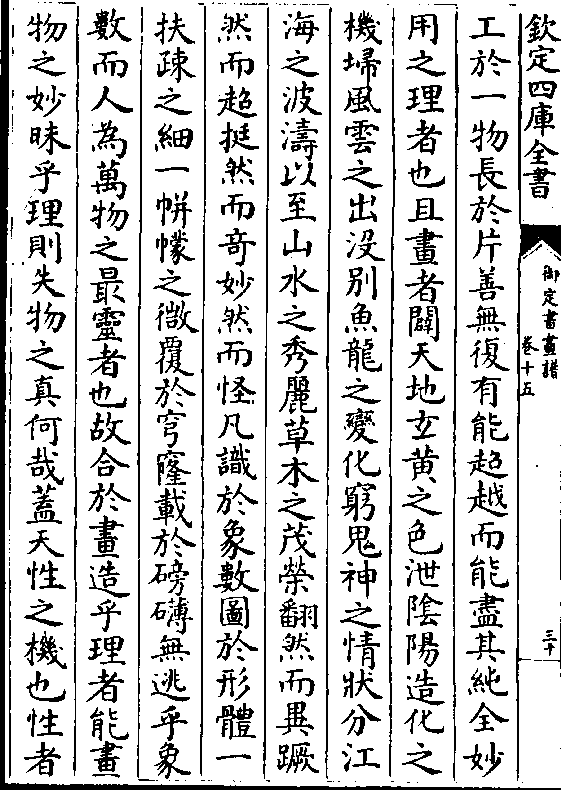 欽定四庫全書
御定書畫譜
卷十五
三十
工於一物長於片善無復有能超越而能盡其純全妙
用之理者也且畫者闢天地玄黃之色泄陰陽造化之
機埽風雲之出没别魚龍之變化窮鬼神之情狀分江
海之波濤以至山水之秀麗草木之茂榮翻然而異蹶
然而超挺然而奇妙然而怪凡識於象數圖於形體一
扶疎之細一帡幪之微覆於穹窿載於磅礴無逃乎象
數而人為萬物之最靈者也故合於畫造乎理者能畫
物之妙昧乎理則失物之真何哉蓋天性之機也性者